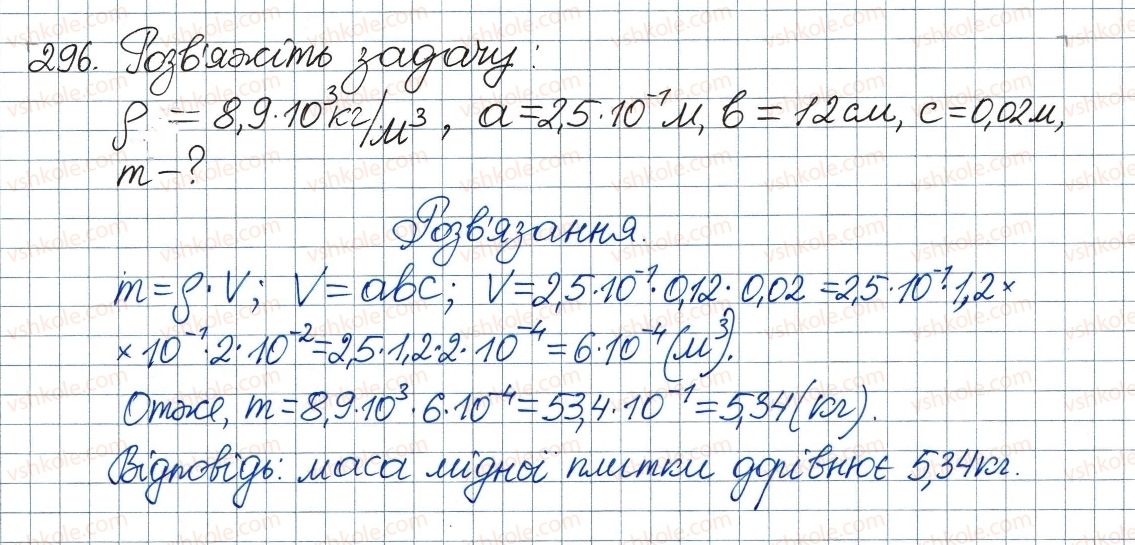 296. Розв'яжіть задачу:
ρ = 8,9·10³кг/м³, a=2,5·10⁻¹м, в = 12см, с=0,02м,
m-?
Розв'язання.
m=ρ·V; V=авс; V=2,5·10⁻¹·0,12·0,02=2,5·10⁻¹·1,2×
×10⁻¹·2·10⁻²=2,5·1,2·2·10⁻⁴=6·10⁻⁴(м³).
Отже, m=8,9·10³·6·10⁻⁴=53,4·10⁻¹=5,34(кг).
Відповідь: маса мідної плитки дорівнює 5,34кг.